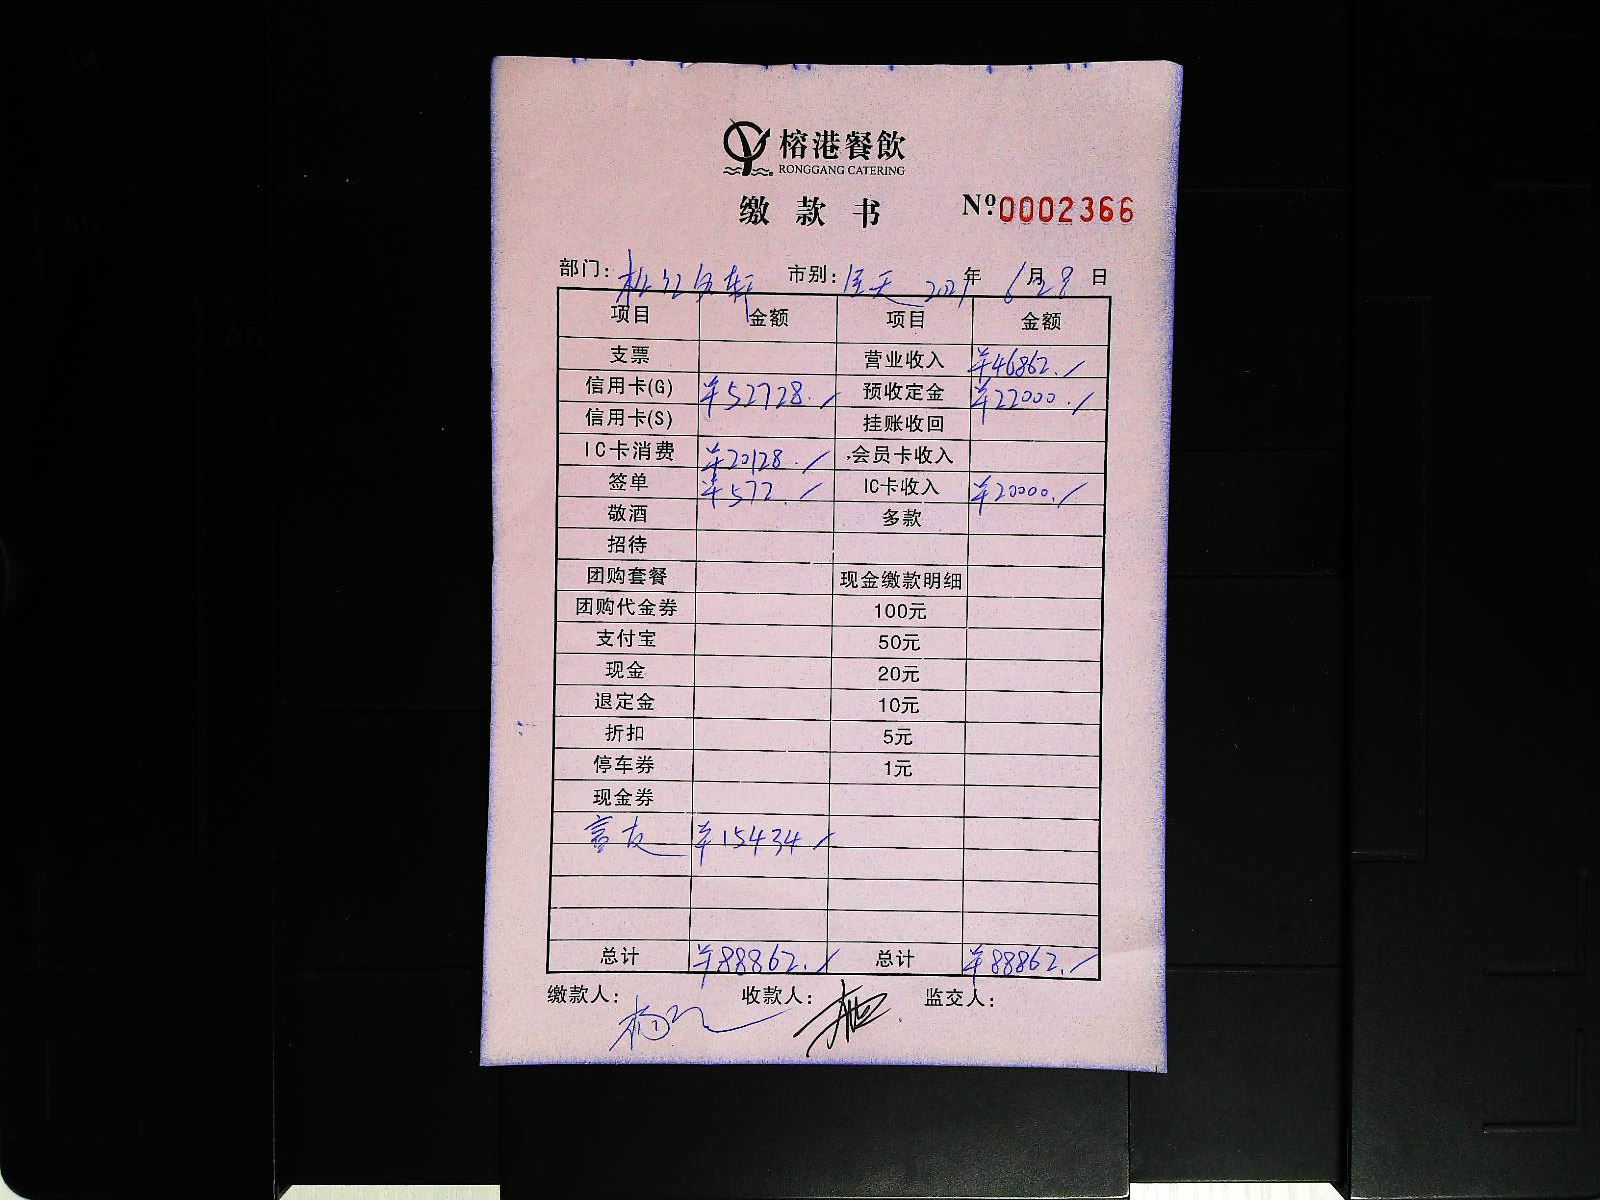 榕港餐飲
RONGGANG CATERING
缴款书 Nº:0002366
部门: 市别: 全天 2021年 6月28日
项目 金额 项目 金额
支票 营业收入 ¥46862.
信用卡(G) ¥52728. 预收定金 ¥22000.
信用卡(S) 挂账收回
IC卡消费 ¥20128. 会员卡收入
签单 ¥572. IC卡收入 ¥20000.
敬酒 多款
招待
团购套餐 现金缴款明细
团购代金券 100元
支付宝 50元
现金 20元
退定金 10元
折扣 5元
停车券 1元
现金券
富友 ¥15434.
总计 ¥88862. 总计 ¥88862.
缴款人: 收款人: 监交人: